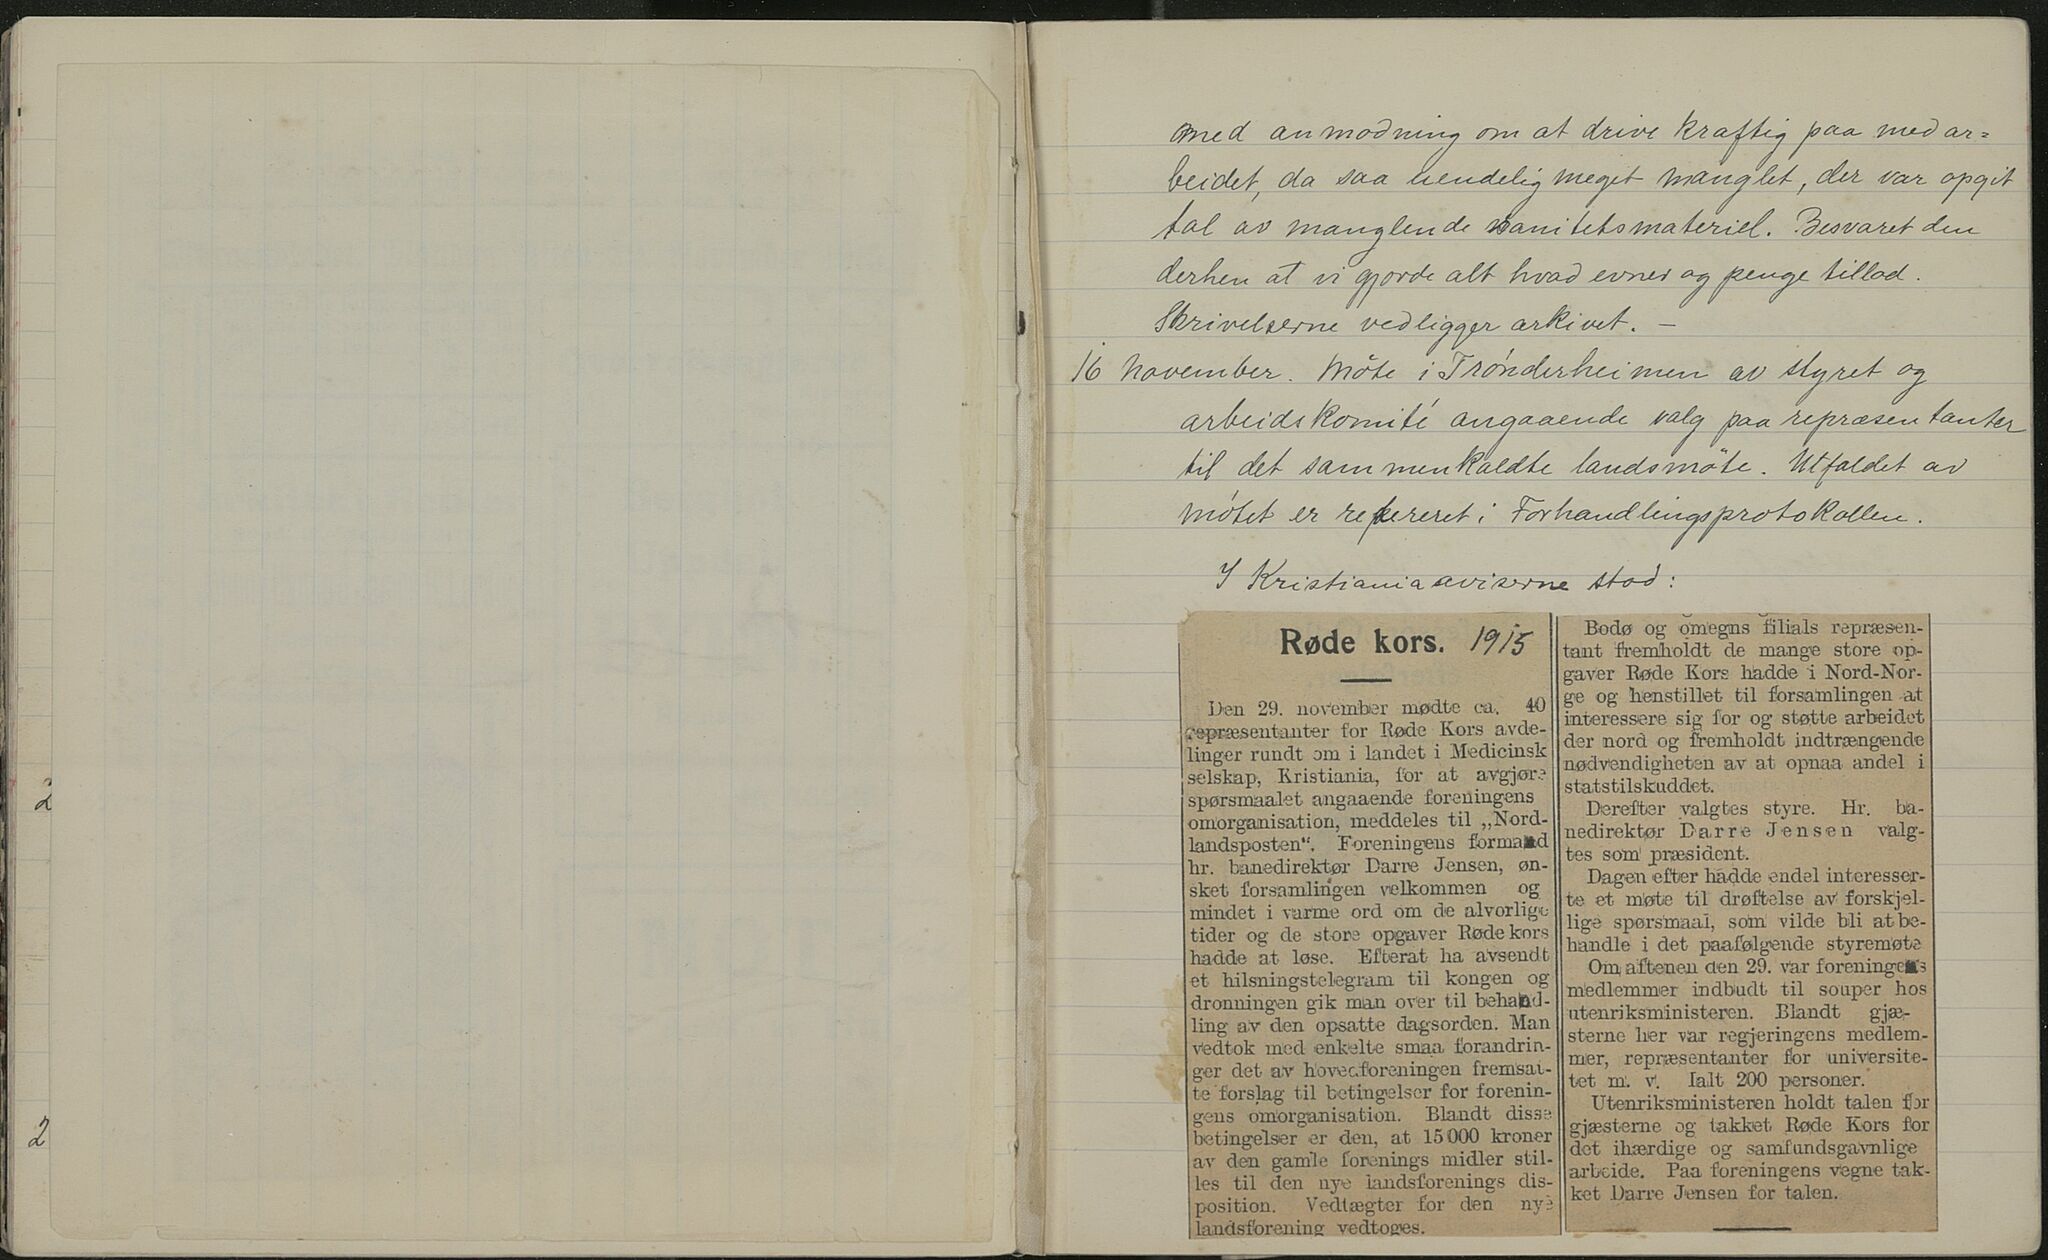 2
2
med anmodning om at drive kraftig paa med ar=
beidet, da saa uendelig meget manglet, der var opgit
tal av manglende sanitetsmateriel. Besvaret den
derhen at vi gjorde alt hvad evner og penge tillod.
Skrivelserne vedligger arkivet. —
16 november. Möte i Trónderheimen av styret og
arbeidskomité angaaende valg paa repræsentanter
til det sammenkaldte landsmöte. Utfaldet av
mótet er refereret i Forhandlingsprotokollen.
I Kristianiaaviserne stod:
Røde kors. 1915
Den 29. november mødte ca. 40
repræsentanter for Røde Kors avde-
linger rundt om i landet i Medicinsk
selskap, Kristiania, for at avgjøre
spørsmaalet angaaende foreningens
omorganisation, meddeles til „Nord-
landsposten“. Foreningens formand
hr. banedirektør Darre Jensen, øn-
sket forsamlingen velkommen og
mindet i varme ord om de alvorlige
tider og de store opgaver Røde kors
hadde at løse. Efterat ha avsendt
et hilsningstelegram til kongen og
dronningen gik man over til behand-
ling av den opsatte dagsorden. Man
vedtok med enkelte smaa forandrin-
ger det av hovedforeningen fremsat-
te forslag til betingelser for forenin-
gens omorganisation. Blandt disse
betingelser er den, at 15 000 kroner
av den gamle forenings midler stil-
les til den nye landsforenings dis-
position. Vedtægter for den nye
landsforening vedtoges.
Bodø og omegns filials repræsen-
tant fremholdt de mange store op-
gaver Røde Kors hadde i Nord-Nor-
ge og henstillet til forsamlingen at
interessere sig for og støtte arbeidet
der nord og fremholdt indtrængende
nødvendigheten av at opnaa andel i
statstilskuddet.
Derefter valgtes styre. Hr. ba-
nedirektør Darre Jensen valg-
tes som præsident.
Dagen efter hadde endel interesser-
te et møte til drøftelse av forskjel-
lige spørsmaal, som vilde bli at be-
handle i det paafølgende styremøte
Om aftenen den 29. var foreningens
medlemmer indbudt til souper hos
utenriksministeren. Blandt gjæ-
sterne her var regjeringens medlem-
mer, repræsentanter for universite-
tet m. v. Ialt 200 personer.
Utenriksministeren holdt talen for
gjæsterne og takket Røde Kors for
det ihærdige og samfundsgavnlige
arbeide. Paa foreningens vegne tak-
ket Darre Jensen for talen.